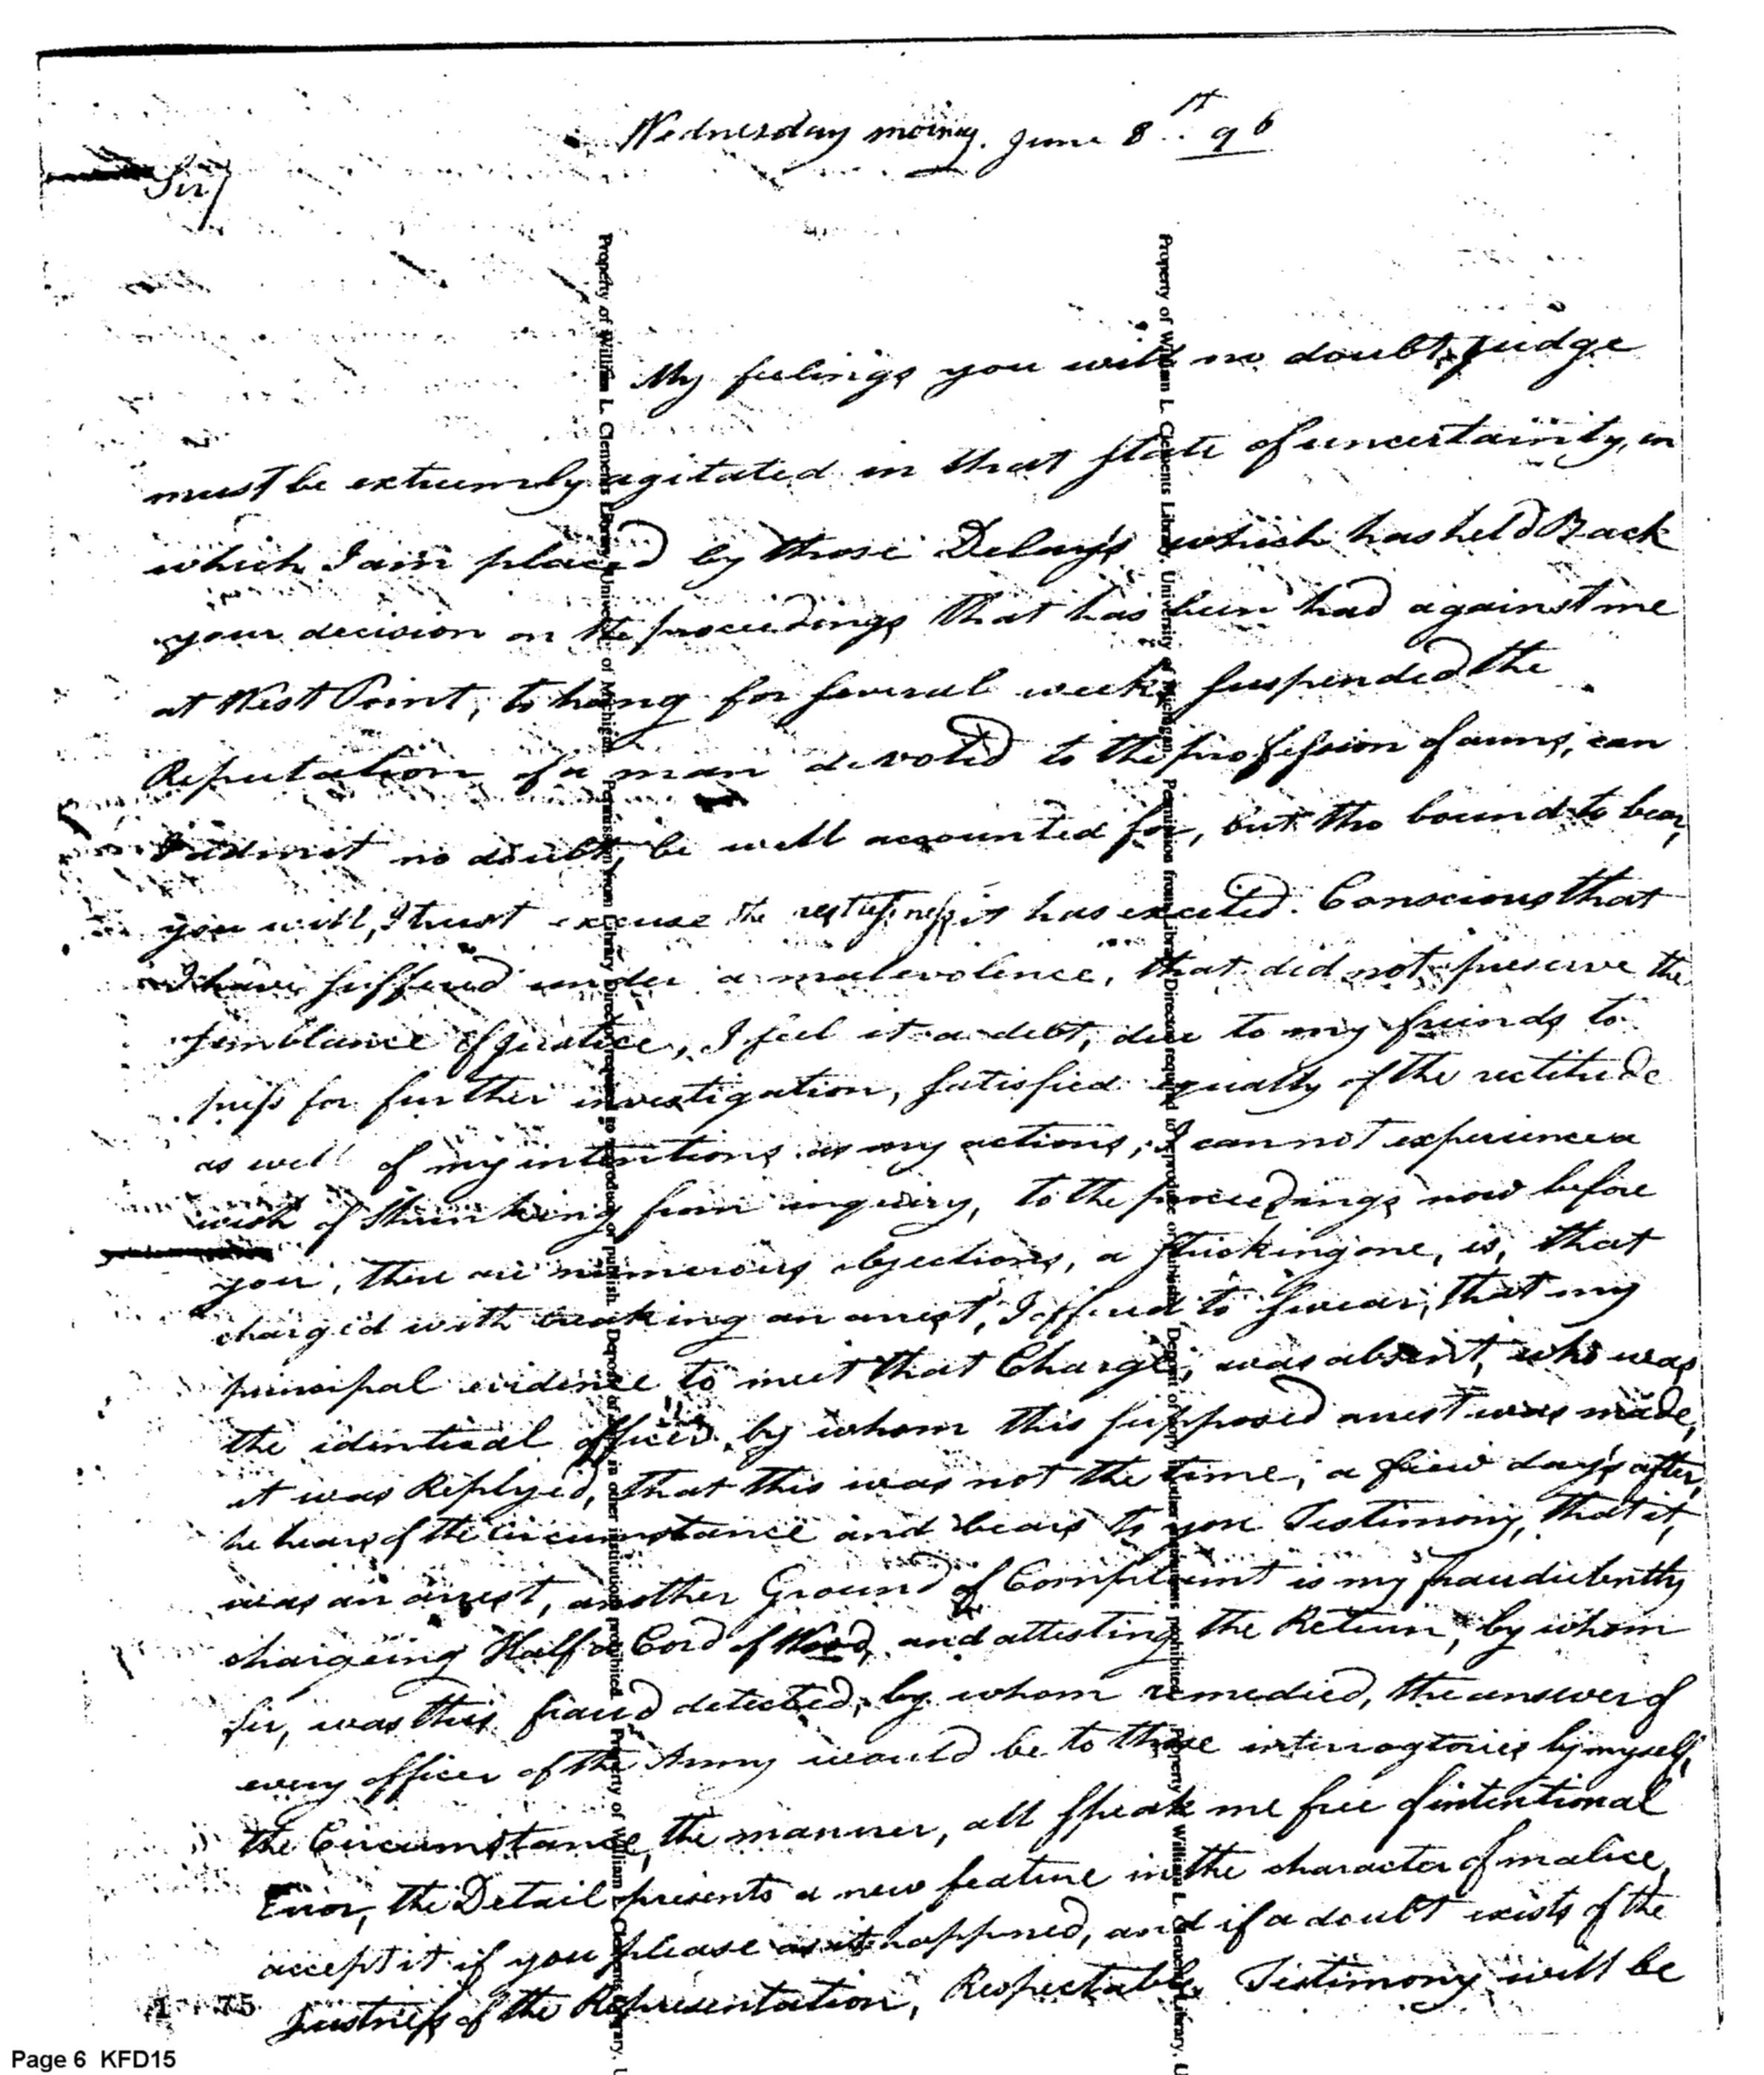 Wednesday moing. June 8th. 96
Sir/
My feelings you will no doubt, judge
must be extreemly agitated in that state of uncertainity, in
which I am placed by those Delays which has held Back
your decision on the proceedings that has been had against me
at West Point, to hang for several weeks suspended the
Reputation of a man devoted to the profession of arms, can
I admit no doubt, be well accounted for, but tho bound to bear,
you will, I trust excuse the restlessness it has excited. Conscious that
I have suffered under a malevolence, that did not preserve the
semblance of justice, I feel it a debt, due to my friends to
press for further investigation, satisfied equally of the rectitude
as well of my intentions as my actions, I can not experience a
wish of Shrinking from inquiry, to the proceedings now before
you, there are numerous objections, a striking one, is, that
charged with breaking an arrest, I offered to swear, that my
principal evidence to meet that Charge, was absent, who was
the identical officer by whom this supposed arrest was made,
it was Replyed, that this was not the time, a few days after,
he hears of the circumstance and bears to you Testimony, that it,
was an arrest, another Ground of Complaint is my fraudulently
chargeing Half a Cord of Wood, and attesting the Return, by whom
Sir, was this fraud detected, by whom remedied, the answer of
every officer of the Army would be to these interrogtories by myself,
the Circumstance, the manner, all speak me free of intentional
Error, the Detail presents a new feature in the character of malice,
accept it if you please as it happned, and if a doubt exists of the
Justness of the Representation, Respectable Testimony will be
75
Property of William L. Clements Library, University of Michigan. Permission from Library Director required to reproduce or publish. Deposit of copy in other institutions prohibited. Property of William L. Clements Library, U
Property of William L. Clements Library, University of Michigan. Permission from Library Director required to reproduce or publish. Deposit of copy in other institutions prohibited. Property of William L. Clements Library, U
Page 6 KFD15